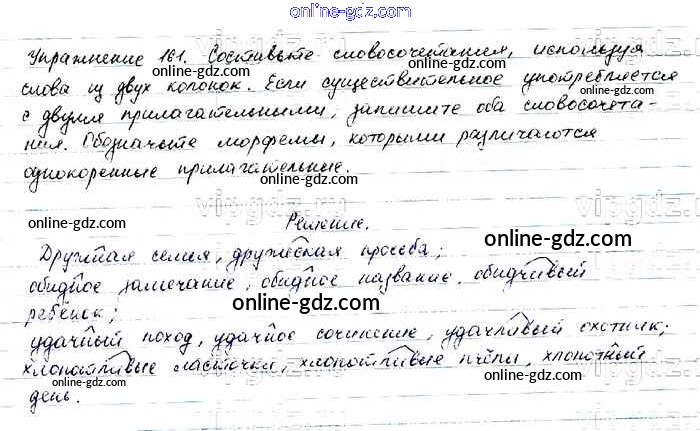 online-gdz.com
Упражнение 161. Составьте словосочетания, используя
online-gdz.com online-gdz.com
слова из двух колонок. Если существительное употребляется
с двумя прилагательными, запишите оба словосочета-
online-gdz.com
ния. Обозначьте морфемы, которыми различаются
однокоренные прилагательные.
online-gdz.com
vipgdz.ru
online-gdz.com
Решение.
online-gdz.com
Дружная семья, дружеская просьба;
online-gdz.com
обидное замечание, обидное название, обидчивый
online-gdz.com
ребёнок;
удачный поход, удачное сочинение, удачливый охотник;
online-gdz.com
хлопотливые ласточки, хлопотливые пчёлы, хлопотный
online-gdz.com
online-gdz.com
день.